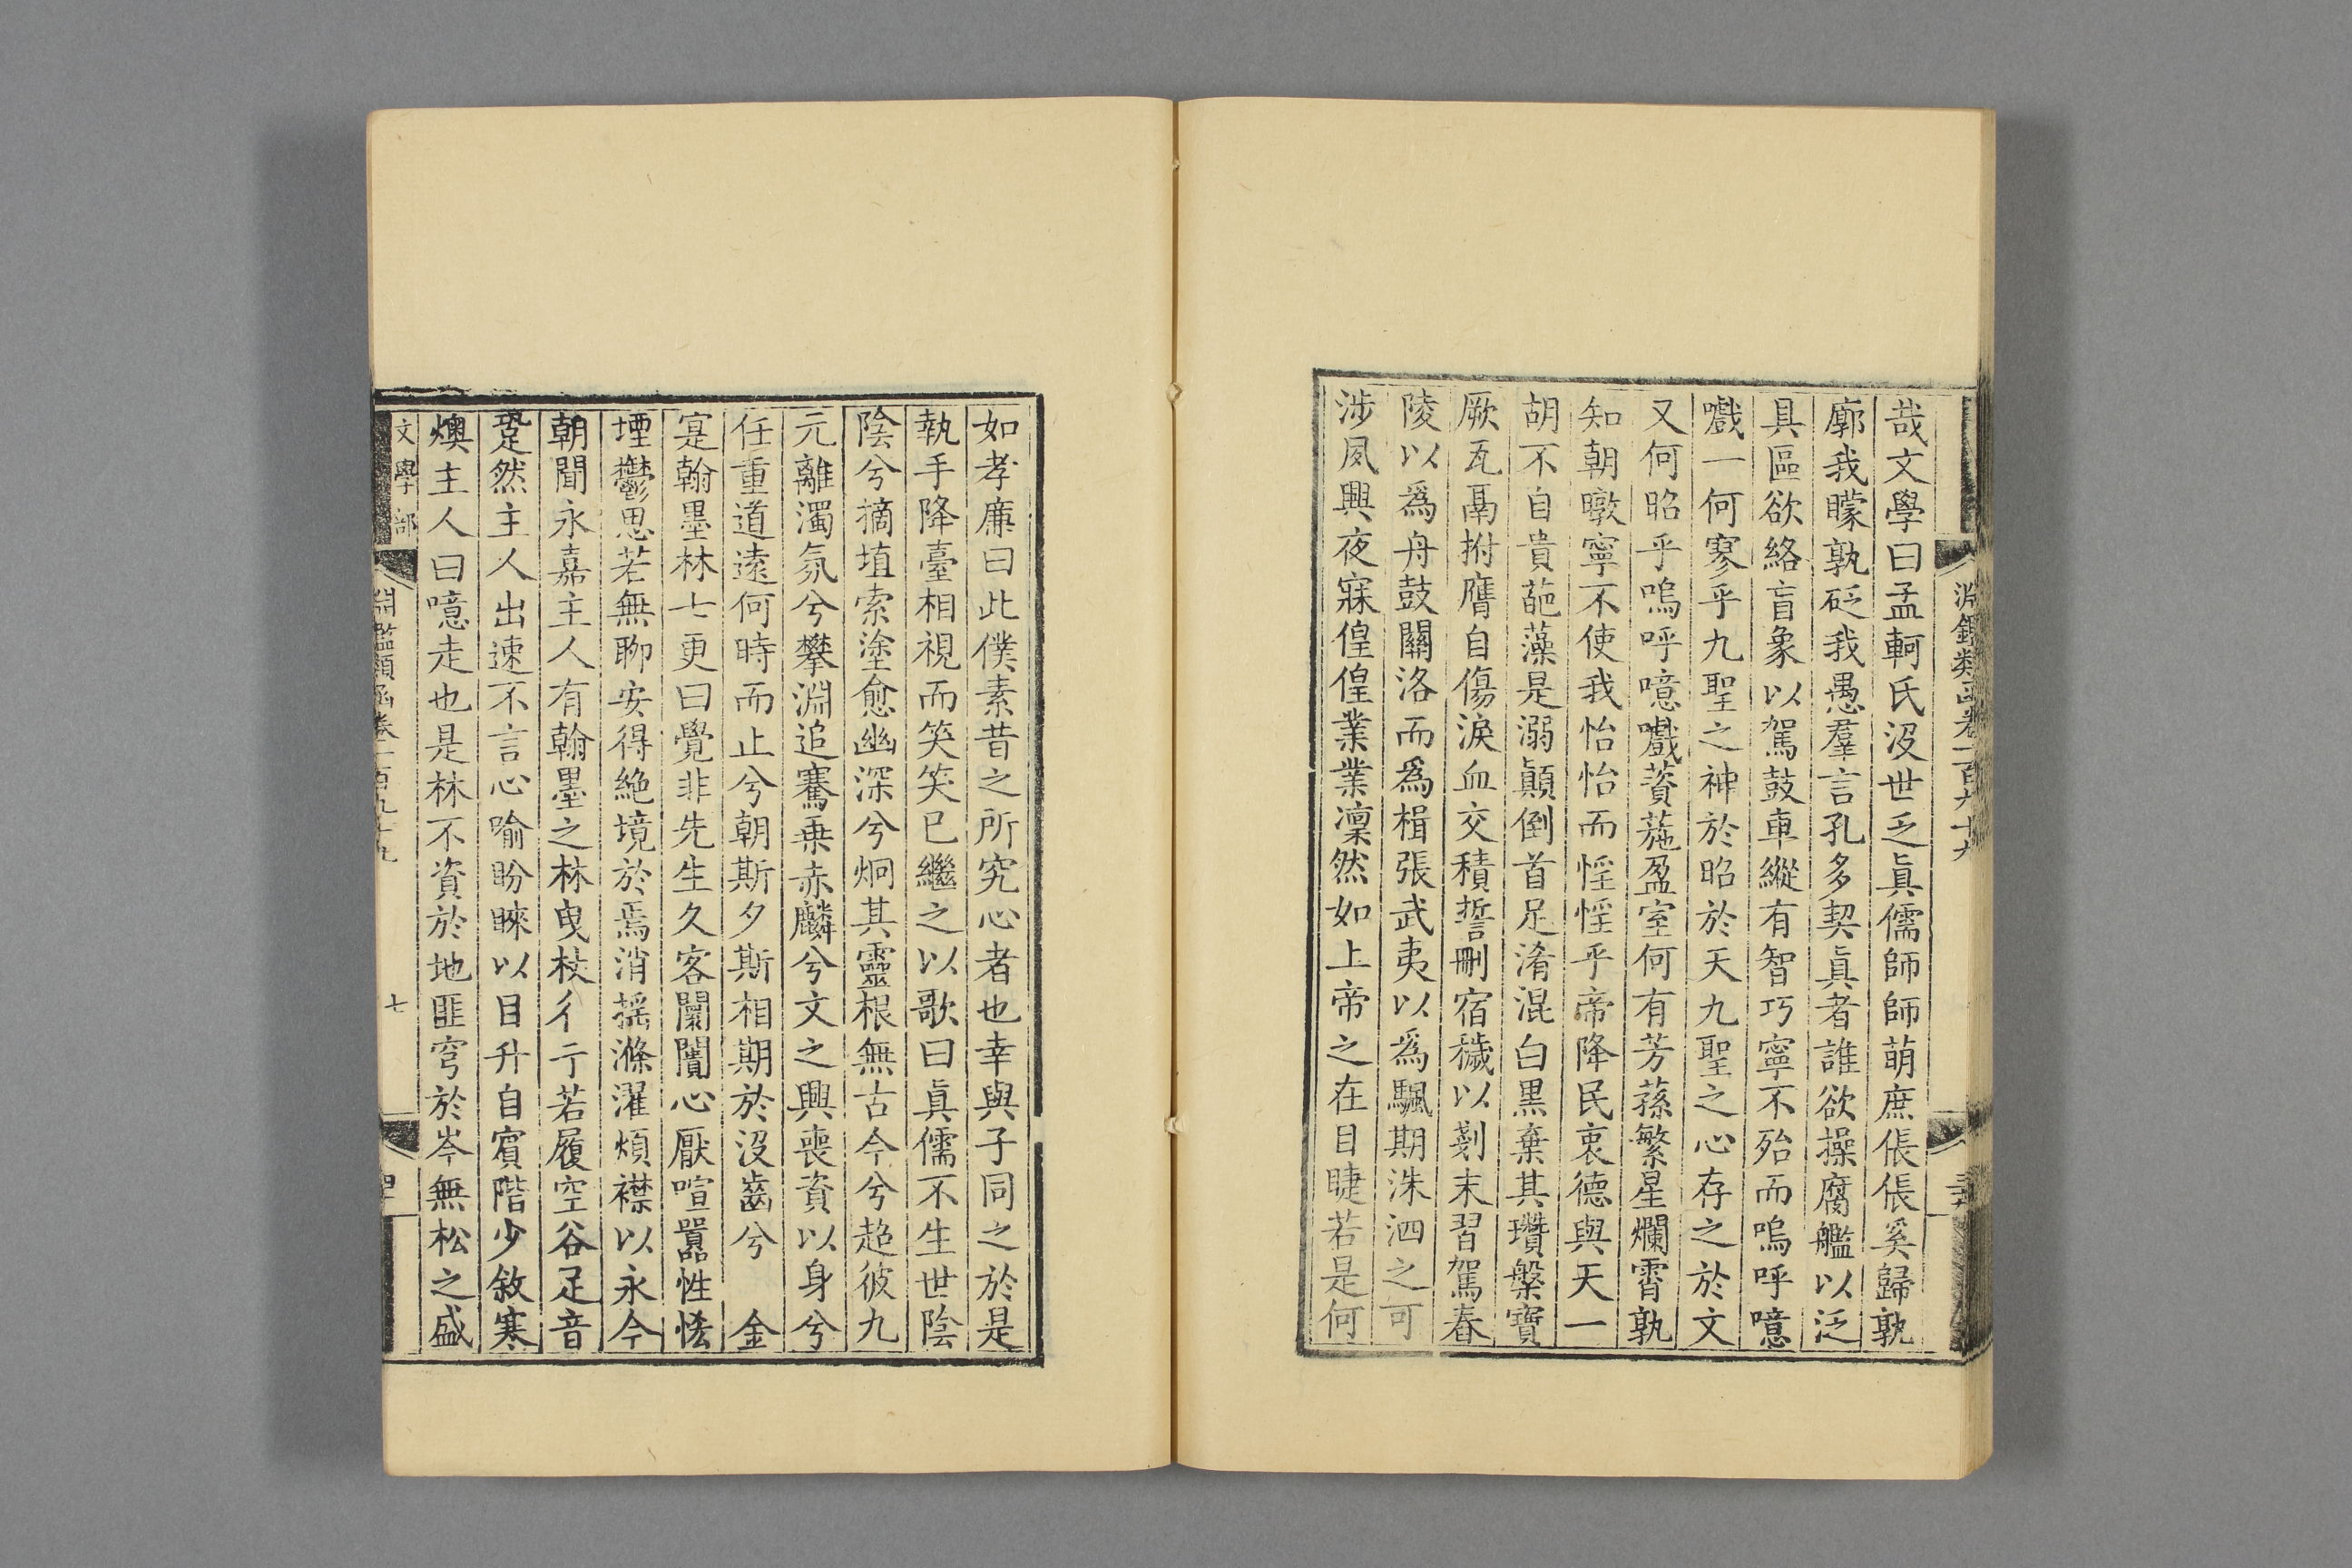 淵鑑類函卷一百九十九
哉文學曰孟軻氏沒世乏眞儒師師萌庶倀倀奚歸孰
廓我矇孰砭我愚羣言孔多契眞者誰欲操腐艦以泛
具區欲絡盲象以駕鼓車縱有智巧寧不殆而嗚呼噫
嚱一何寥乎九聖之神於昭於天九聖之心存之於文
又何昭乎嗚呼噫嚱薋葹盈室何有芳蓀繁星爛霄孰
知朝暾寧不使我怡怡而惶惶乎帝降民衷德與天一
胡不自貴葩藻是溺顚倒首足淆混白黒棄其瓚槃寶
厥瓦鬲拊膺自傷淚血交積誓刪宿穢以剗末習駕春
陵以爲舟鼓關洛而爲楫張武夷以爲颿期洙泗之可
涉夙興夜寐偟偟業業凜然如上帝之在目睫若是何
如孝廉曰此僕素昔之所究心者也幸與子同之於是
執手降臺相視而笑笑已繼之以歌曰眞儒不生世陰
陰兮擿埴索塗愈幽深兮炯其靈根無古今兮超彼九
元離濁氛兮攀淵追騫乗赤麟兮文之興喪資以身兮
任重道遠何時而止兮朝斯夕斯相期於沒齒兮 金
寔翰墨林七更曰覺非先生久客闤闠心厭喧囂性恡
堙鬱思若無聊安得絶境於焉消揺滌濯煩襟以永今
朝聞永嘉主人有翰墨之林曳杖彳亍若履空谷足音
跫然主人出速不言心喻盼睞以目升自賓階少敘寒
燠主人曰噫走也是林不資於地匪穹於岑無松之盛
文學部
淵鑑類函卷一百九十九
七